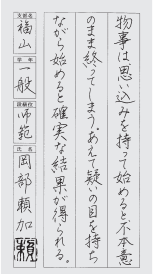 物事は思い込みを持って始めると不本意
のまま終ってしまう。あえて疑いの目を持ち
ながら始めると確実な結果が得られる。
支部名
福山
学年
一般
段級位
師範
氏名
岡部頼加
頼